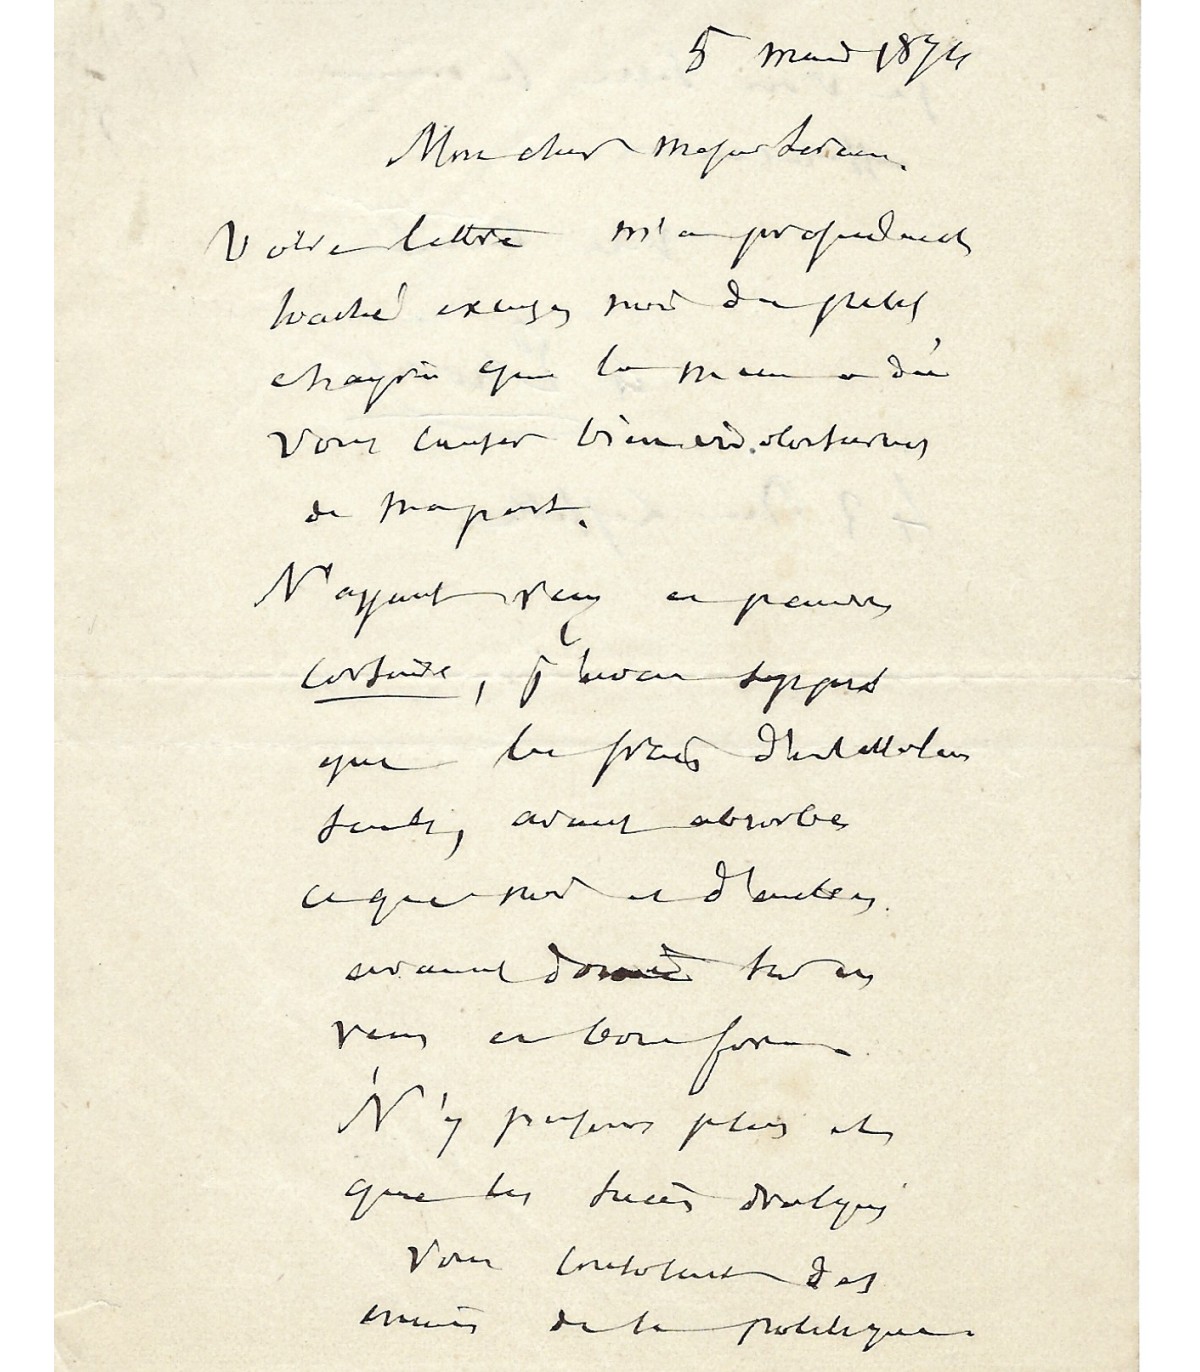 5 mars 1874
Mon cher
Votre lettre m'a profondement
touché excusez moi du petit
chagrin que la mienne a dû
vous causer bien involontairement
de ma part.
N'ayant reçu en
que les frais d'installation
seuls, avaient absorbé
ce que moi et d'autres
avaient donné
reçus en bonne forme
N'y pensons plus et
que les succès
vous consolent des
ennuis de la politique.